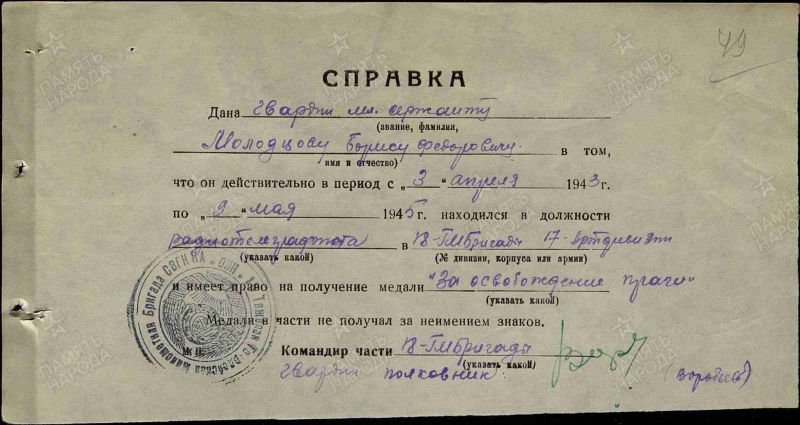 49
СПРАВКА
Дана гвардии мл. сержанту
(звание, фамилия,
Молодцову Борису Федоровичу. в том,
имя и отчество)
что он действительно в период с „3“ апреля 1943 г.
по „9“ мая 1945 г. находился в должности
радиотелеграфиста в ГМБригады 17-Артдивизии
(указать какой) (№ дивизии, корпуса или армии)
и имеет право на получение медали "За освобождение Праги"
(указать какой)
Медали в части не получал за неимением знаков.
М. П. Командир части ГМБригады
(указать какой)
гвардии полковник (Воробьев)
Минометная Бригада СВГК КА
ПАМЯТЬ НАРОДА